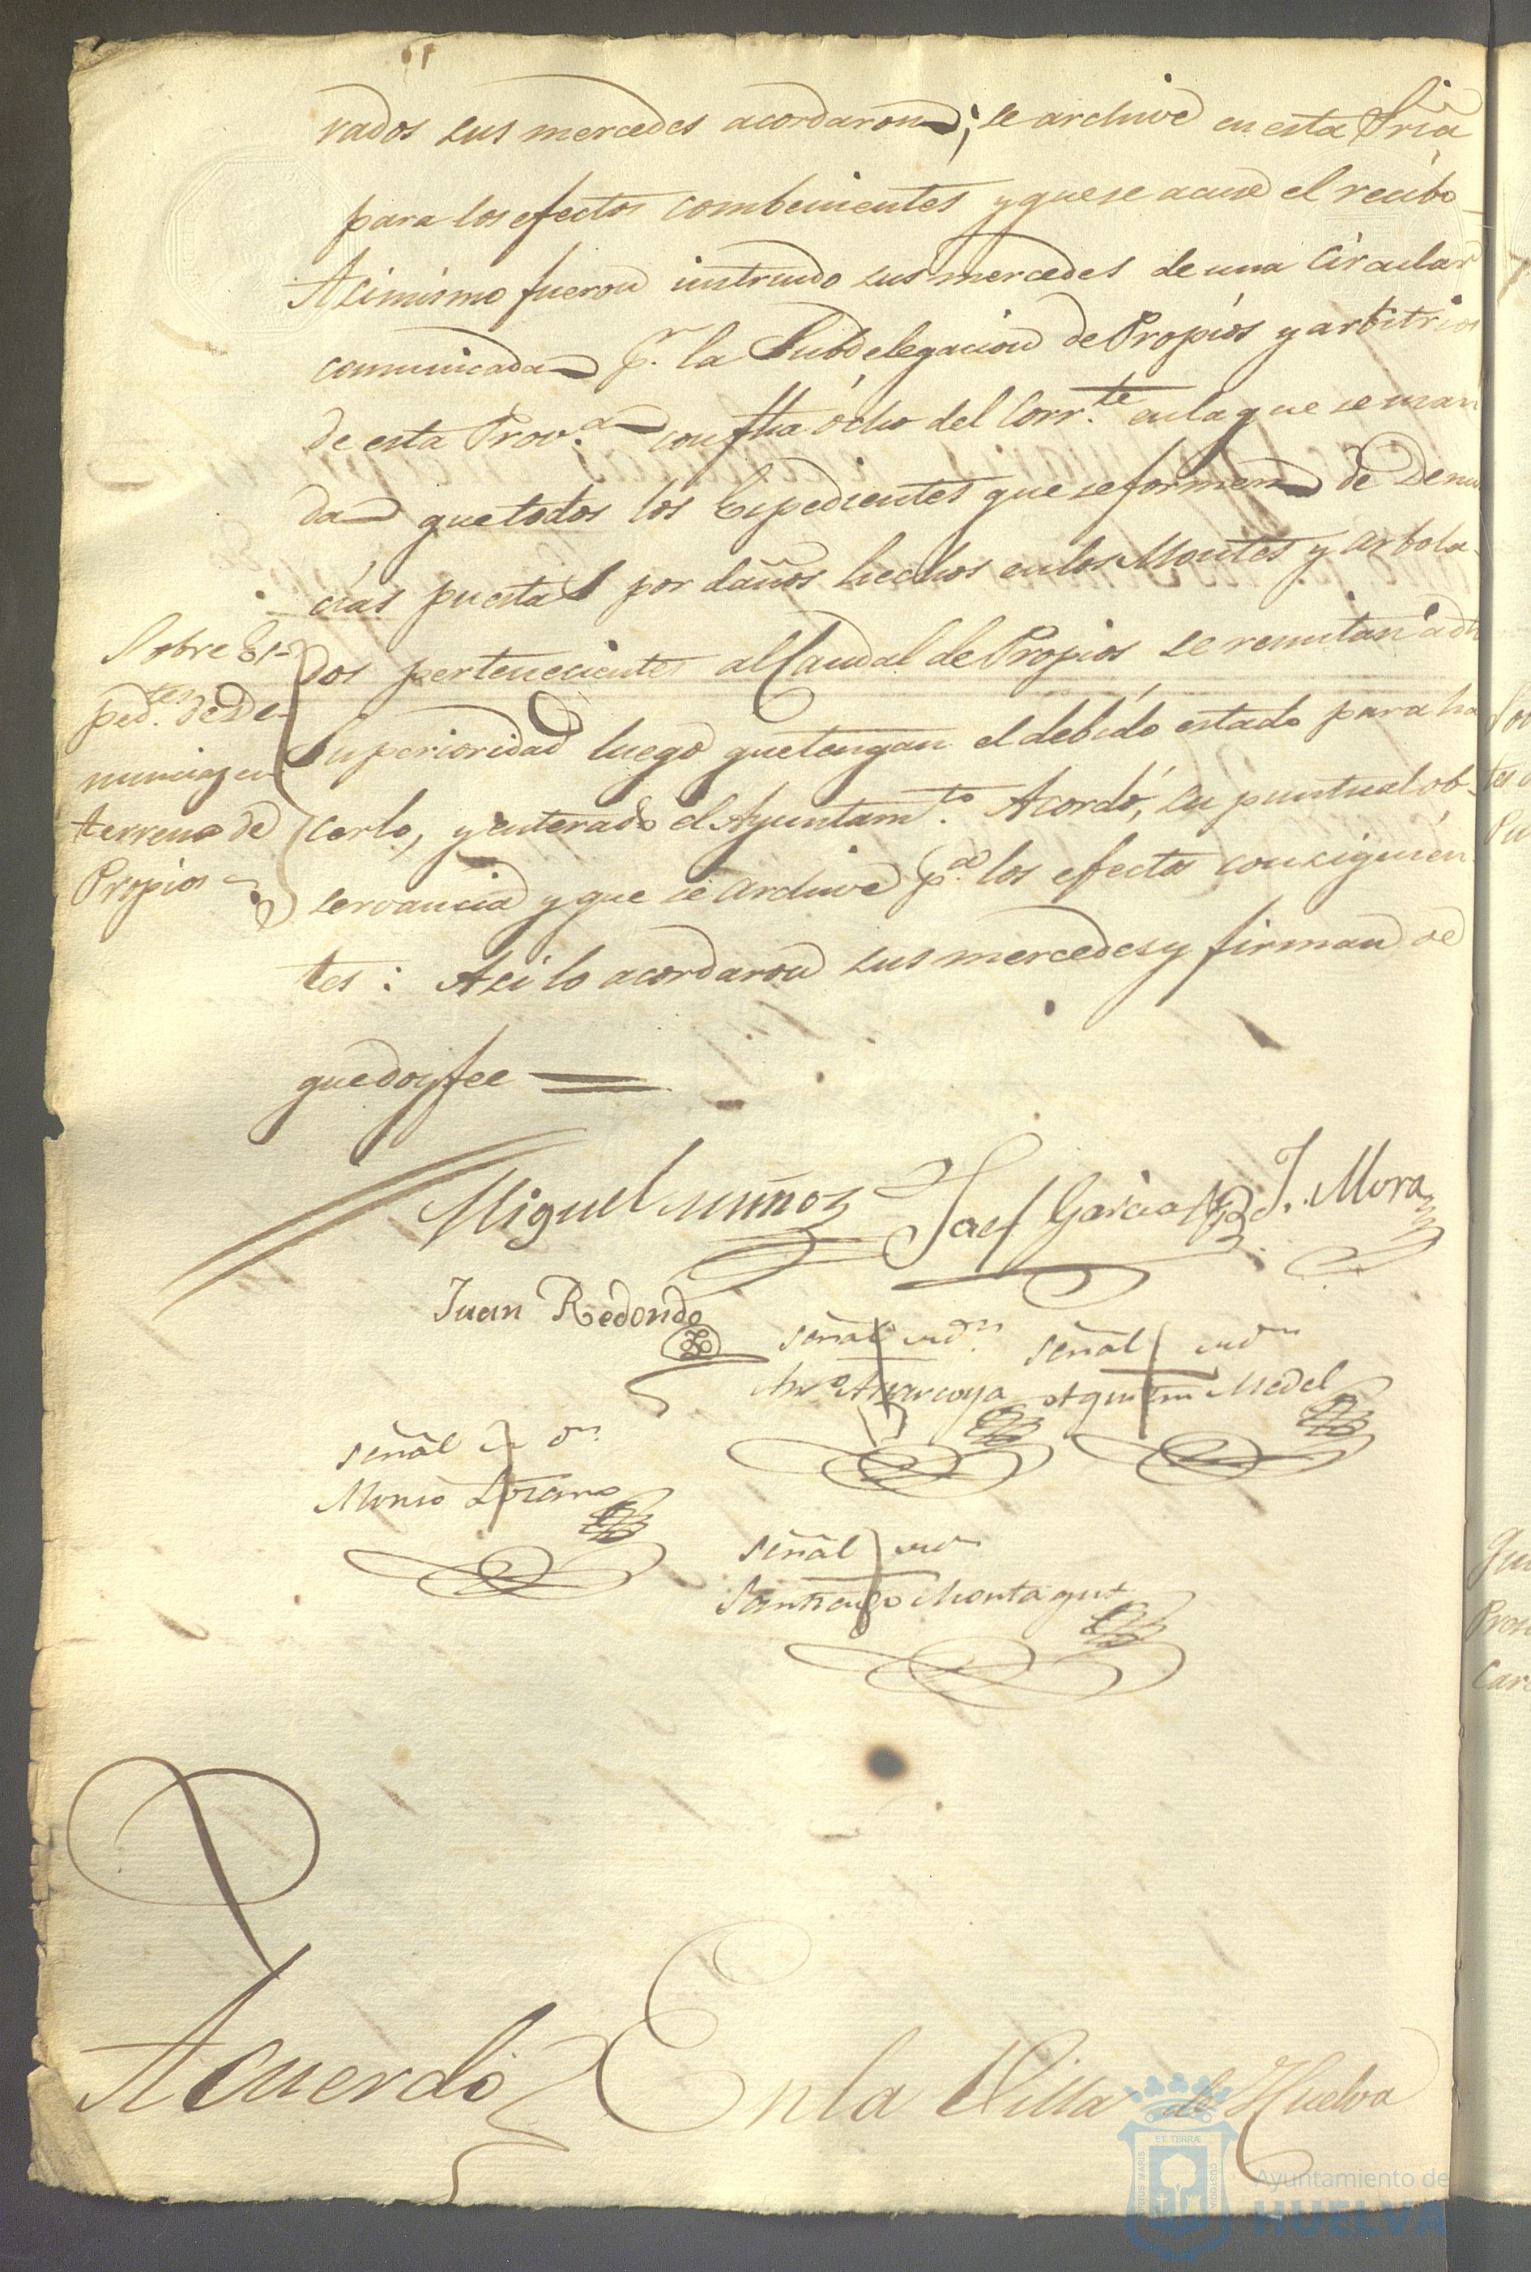 rados sus mercedes acordaron; se archive en esta Sria
para los efectos combenientes y que se acuse el recibo
Asimismo fueron instruido sus mercedes de una Circular
comunicada pr. la Subdelegacion de Propios y arbitrios
de esta Prov.a con fha ocho del Corr.te en la que se man
da que todos los Espedientes que se formen de Denun
cias puestas por daños hechos en los Montes y arbola-
dos pertenecientes al Caudal de Propios se remitan a dha
Superioridad luego que tengan el debido estado para ha
cerlo, y enterado el Ayuntam.to Acordó, su puntual ob-
servancia y que se archive p.a los efectos consiguien
tes: Asi lo acordaron sus mercedes y firman de
que doy fee
Sobre Es-
ped.tes de De-
nuncias en
terreno de
Propios
Miguel Muñoz
Josef Garcia
J. Mora
Juan Redondo
Señal de Dn.
señal de Dn
Agustin Medel
señal de Dn.
Alonso Lozano
señal de Dn
Santiago Montagut
Acuerdo
En la Villa de Huelva
Ayuntamiento de
HUELVA